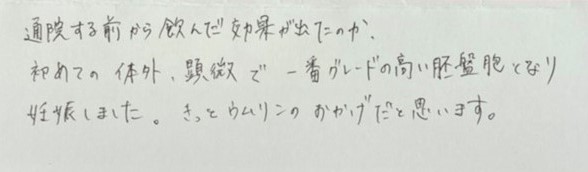 通院する前から飲んだ効果が出たのか、
初めての体外、顕微で一番グレードの高い胚盤胞となり
妊娠しました。きっとウムリンのおかげだと思います。